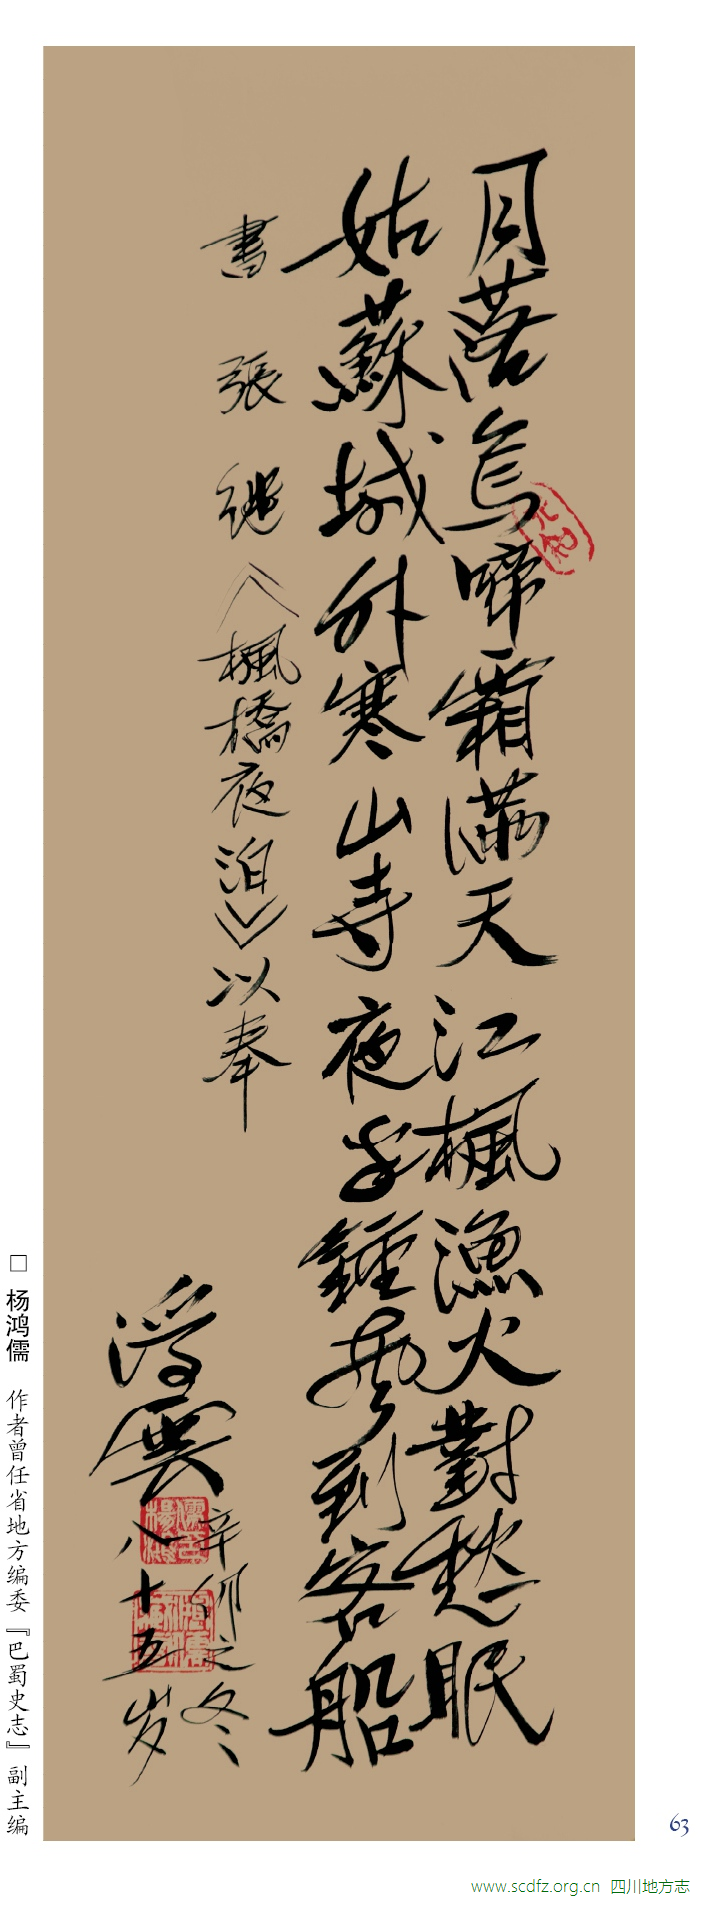 月落烏啼霜滿天江楓漁火對愁眠
姑蘇城外寒山寺夜半鍾聲到客船
書張繼《楓橋夜泊》以奉
浮雲
辛卯之冬
八十五岁
□ 杨鸿儒 作者曾任省地方编委『巴蜀史志』副主编
63
www.scdfz.org.cn 四川地方志